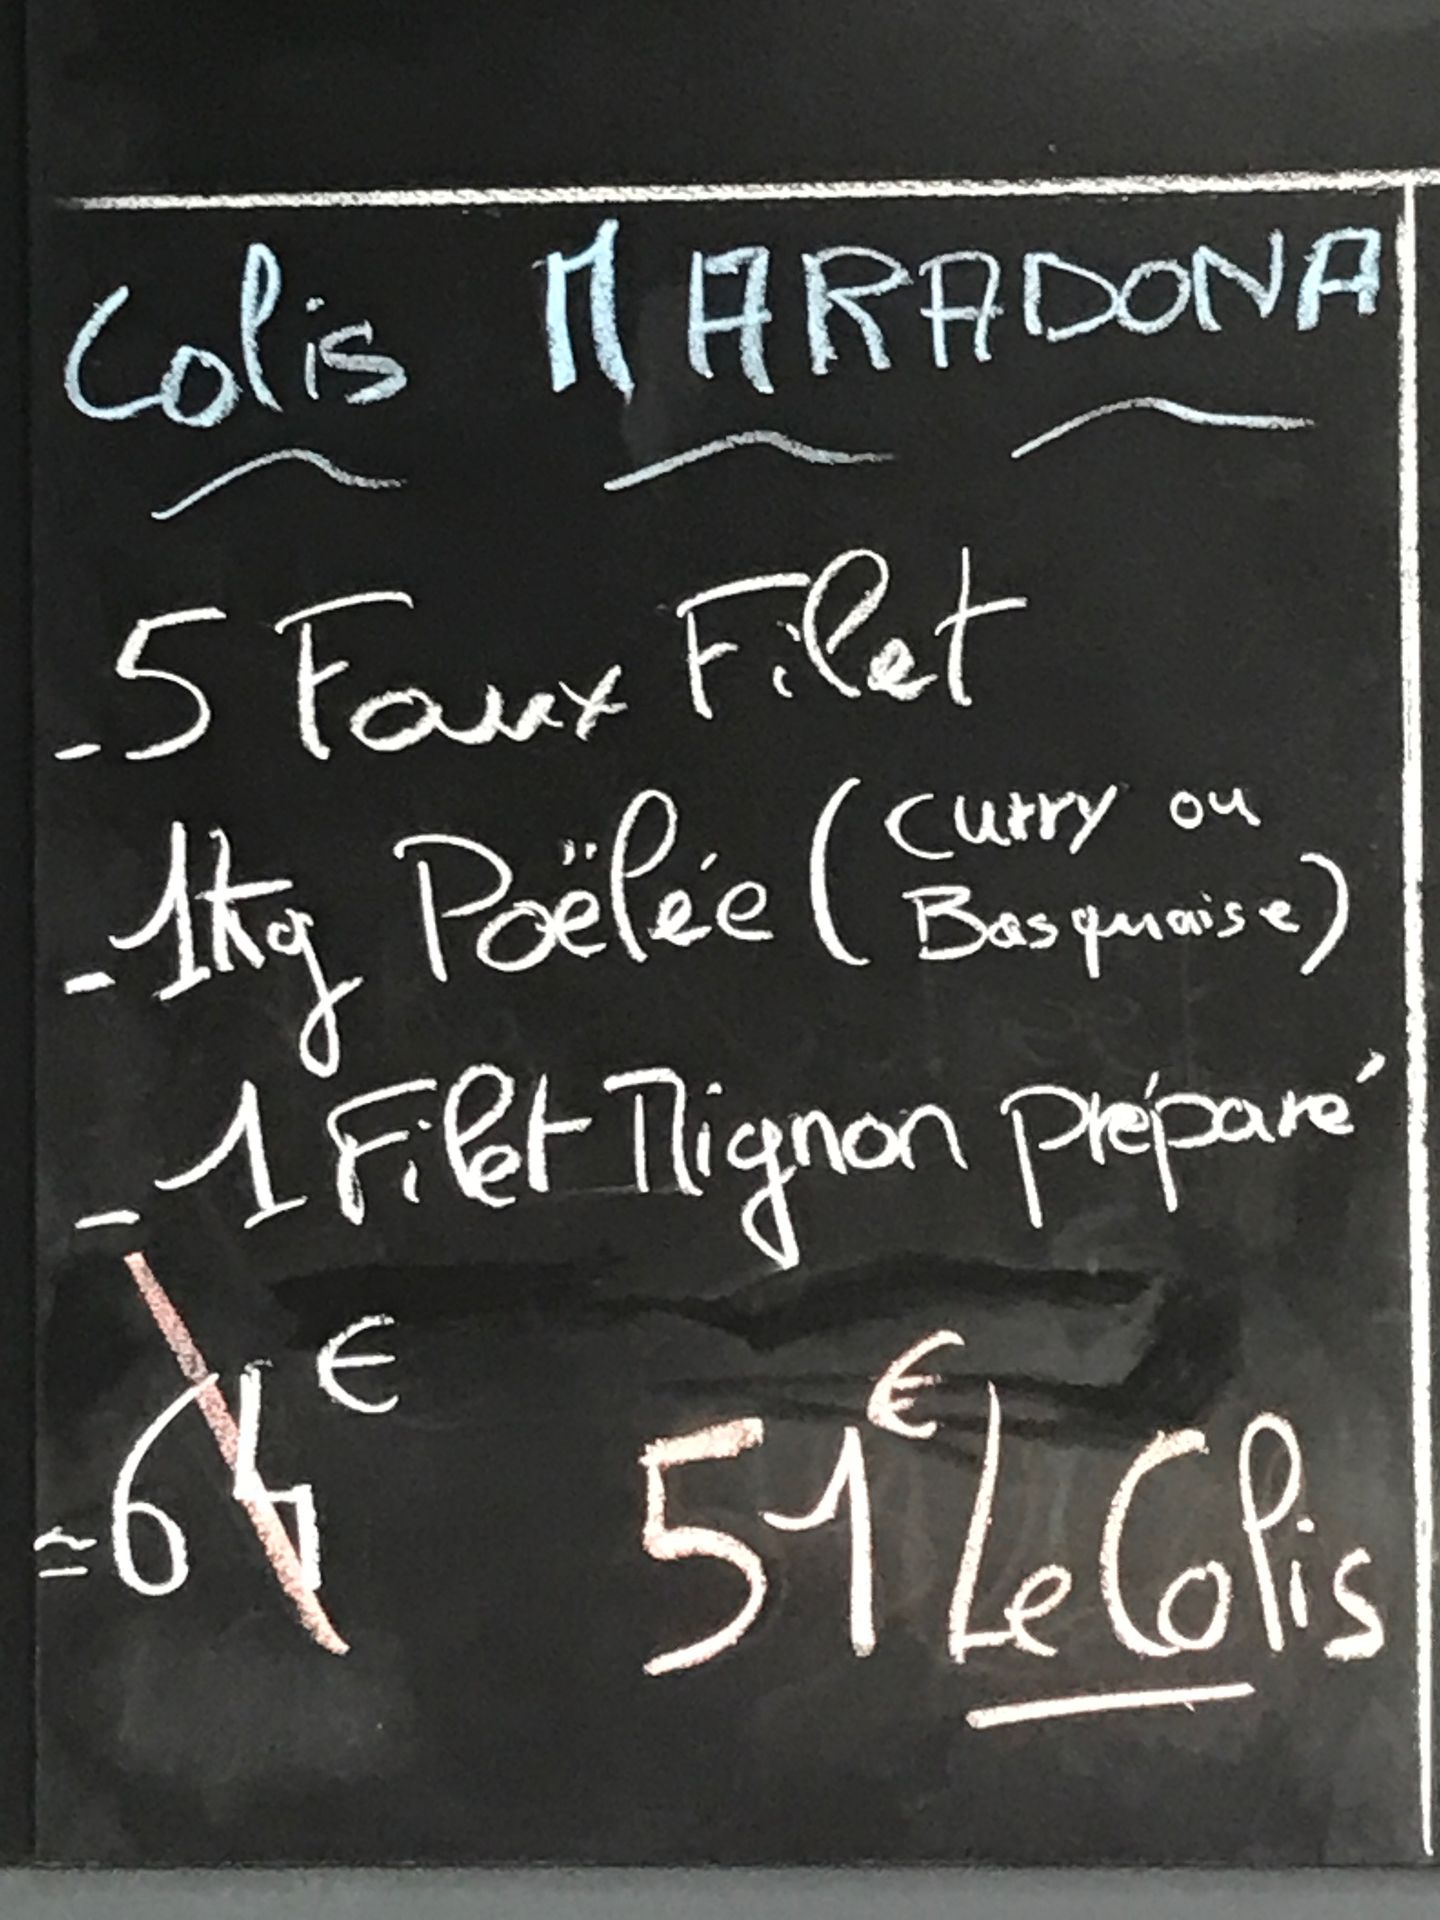 Colis MARADONA
- 5 Faux Filet
- 1kg Poëlée (Curry ou
Basquaise)
- 1 Filet Mignon préparé
≃ 64€
51€ Le Colis